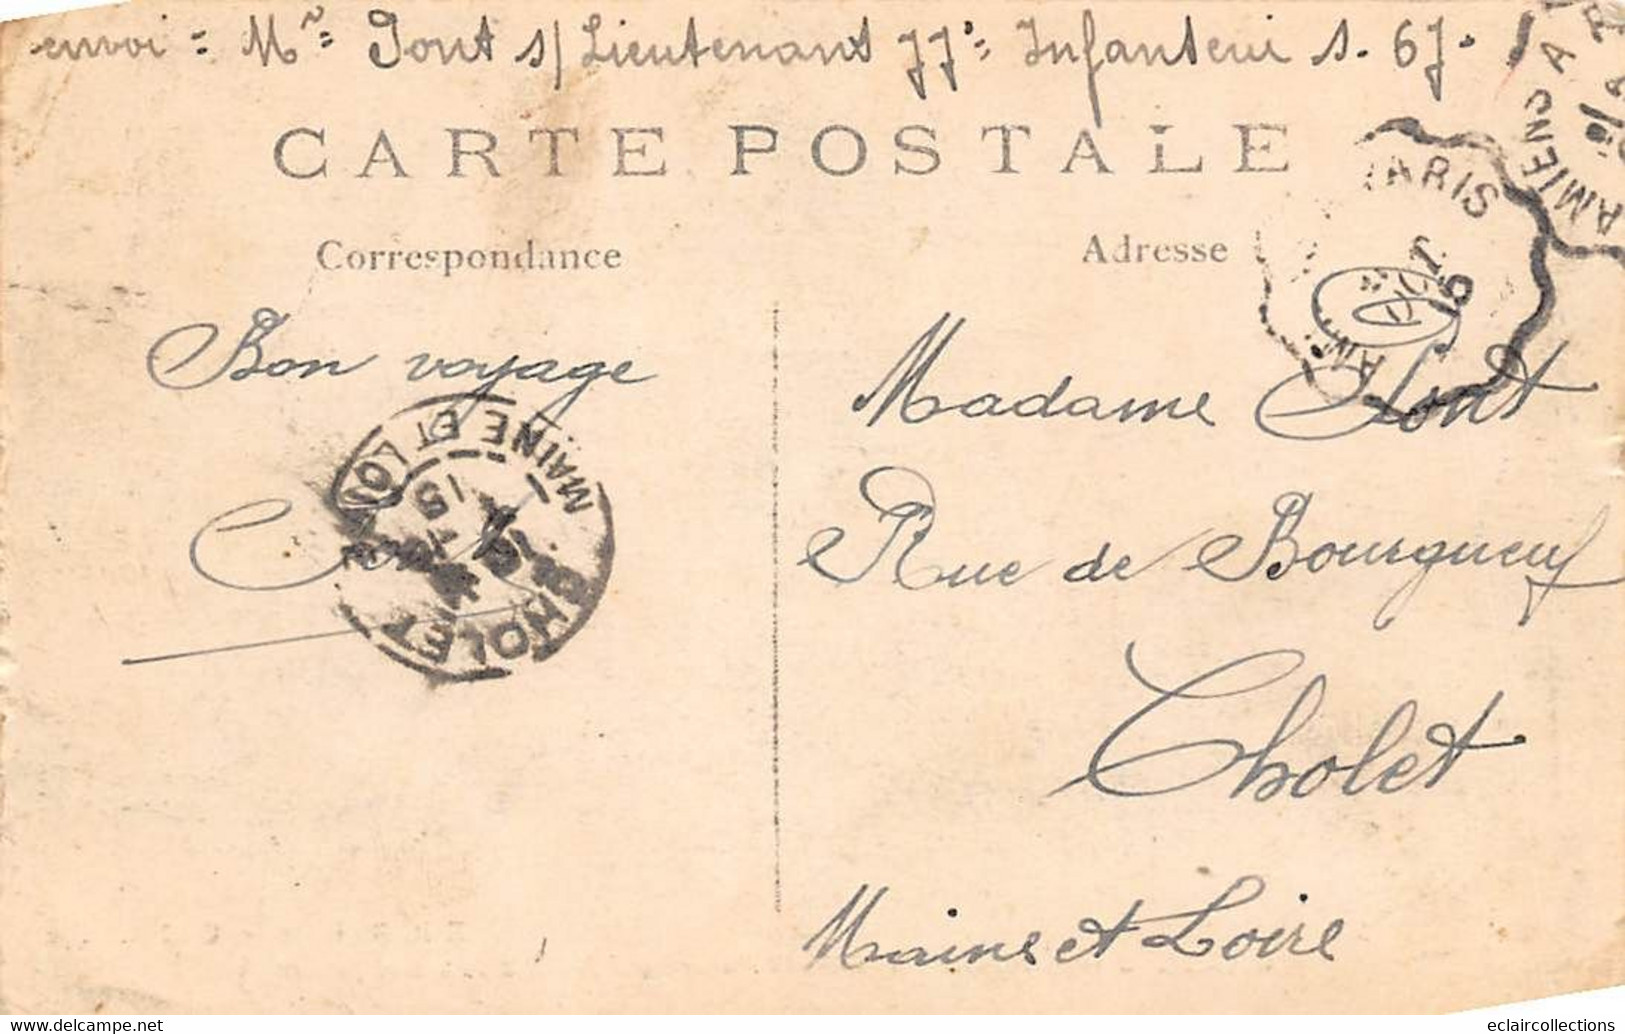 envoi = Mr= Jont s/ Lieutenant 77e= Infanterie s. 67.
CARTE POSTALE
Correspondance
Adresse
AMIENS A
PARIS
Bon voyage
MAINE ET LOIRE
15
CHOLET
Madame Jont
Rue de Bourgneuf
Cholet
Maine et Loire
eclaircollections